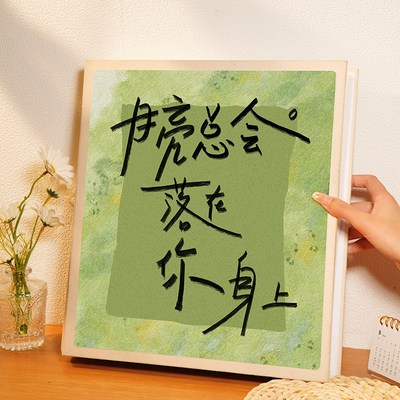 月亮总会。
落在
你身上